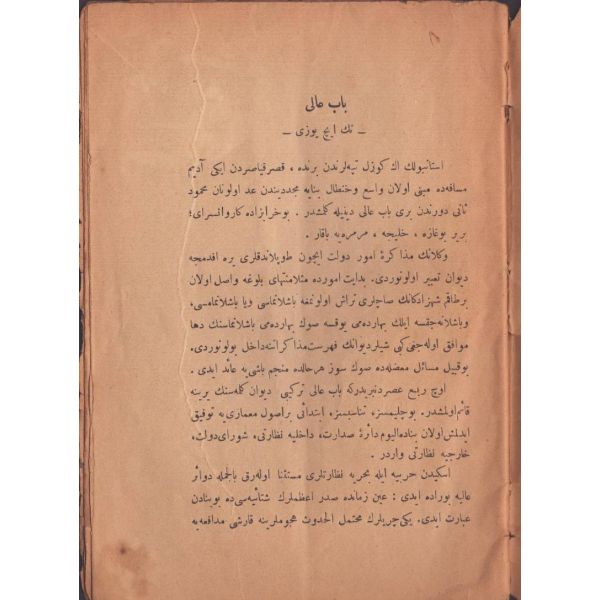 باب عالی
ـ نك ایچ یوزی ـ
استانبولك اك كوزل تپه‌لرندن برنده ، قصر قیاصردن ایكی آدیم
مسافه‌ده مبنی اولان واسع وخنطال بنایه مجددیندن عد اولونان محمود
ثانی دورندن بری باب عالی دینیله كلمشدر . بوخرابزاده كاروانسرای ؛
بربر بوغازه ، خلیجه ، مرمره‌یه باقار .
وكلانك مذاكرهٔ امور دولت ایچون طوپلاندقلری یره اقدمجه
دیوان تعبیر اولونوردی. بدایت امورده مثلا منتهای بلوغه واصل اولان
برطاقم شهزادكانك صاچلری تراش اولونمغه باشلانماسی ویا باشلانمامسی،
وباشلانه‌جقسه ایلك بهارده‌می یوقسه صوك بهارده‌می باشلانماسنك دها
موافق اوله‌جغی كبی شیلر دیوانك فهرست مذاكراتنه داخل بولونوردی.
بوقبیل مسائل معضله‌ده صوك سوز هر حالده منجم باشی‌یه عائد ایدی .
اوچ ربع عصردنبریدركه باب عالی تركیبی دیوان كله‌سنك یرینه
قائم اولمشدر. بوچلیمسز، تناسبسز، ابتدائی براصول معماری‌یه توفیق
ایدلمش اولان بناده الیوم دائرهٔ صدارت، داخلیه نظارتی، شورای دولت،
خارجیه نظارتی واردر .
اسكیدن حربیه ایله بحریه نظارتلری مستثنا اوله‌رق بالجمله دوائر
عالیه بوراده ایدی : عین زمانده صدر اعظملرك شتائیه‌سی‌ده بوبنادن
عبارت ایدی. یكیچریلرك محتمل الحدوث هجوملرینه قارشی مدافعه‌یه